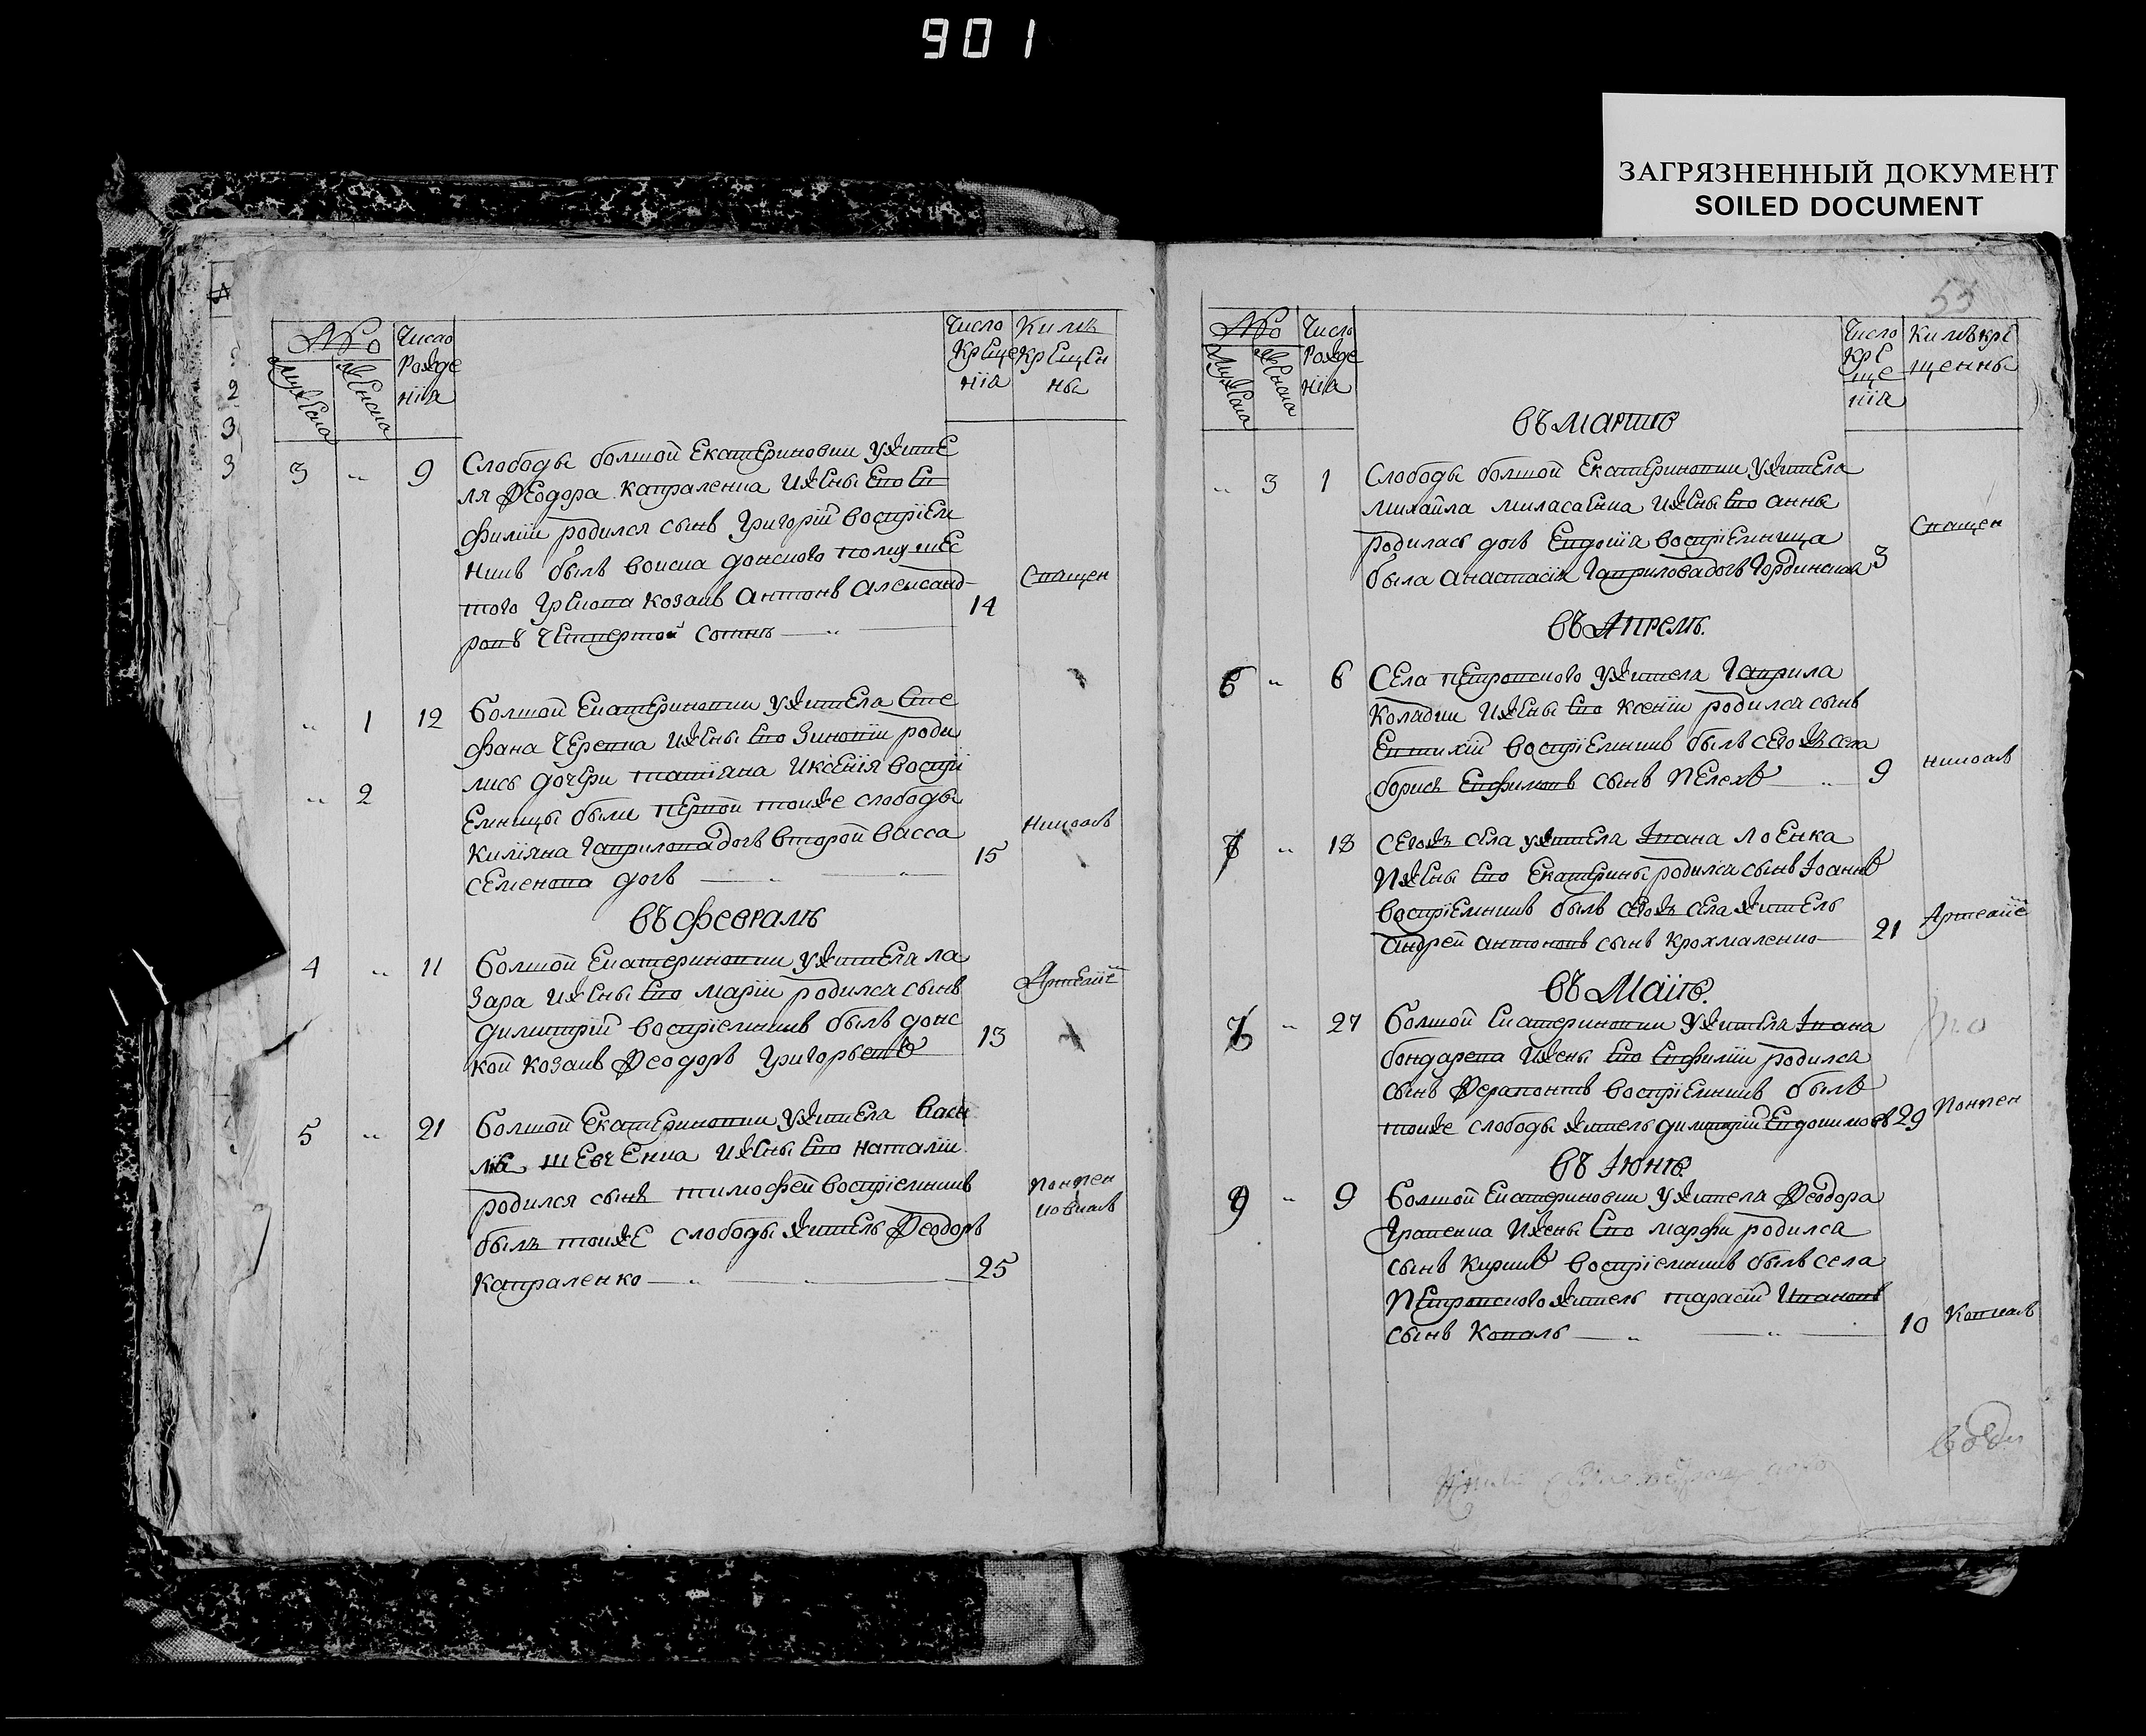 901
ЗАГРЯЗНЕННЫЙ ДОКУМЕНТ
SOILED DOCUMENT
№о
Число
Рожде
нiя
Число
Креще
нiя
Кимъ
Крещен
ны
Мужеска
Женска
3 „ 9 Слободы болшой Екатериновки ужите
ля Ѳеодора Капраленка ижены Его Ев
фимiи родился сынъ Григорiй воспрiем
никъ былъ воиска донского
козакъ Антонъ Александ
ровъ Четвертой сотнѣ 14 Священ
„ 1 12 болшой Екатериновки ужителя Сте
фана Черевка ижены Его Зиновiи роди
„ 2 лись дочери татiяна иксенiя воспрi
емницы были первой тоиже слободы
килiяна Гаврилова дочь второй васса
семенова дочь 15 Николъ
въ февралѣ
4 „ 11 болшой Екатериновки ужителя ла
зара ижены Его марiи родился сынъ
димитрiй воспрiемникъ былъ донс
кой козакъ Ѳеодоръ Григорьевъ 13
5 „ 21 болшой Екатериновки ужителя Васи
лiя Шевченка ижены Его Наталiи
родился сынъ тимофей воспрiемникъ
былъ тоиже слободы житель Ѳеодоръ
Капраленко 25
55
№о
Число
Рожде
нiя
Число
кре
ще
нiя
Кимъ кре
щенны
Мужеска
Женска
въ мартѣ
„ 3 1 Слободы болшой Екатериновки ужителя
михайла миласаенка ижены Его анны
родилась дочь Евдокiя воспрiемница
была анастасiя Гаврилова дочь Гординская 3 Священ
въ Апрелѣ.
6 „ 6 Села петровского ужителя Гаврила
Коладки ижены Его Ксенiи родился сынъ
Евтихiй воспрiемникъ былъ сегожъ села
борисъ Евфимовъ сынъ Пелехъ 9 николъ
7 „ 18 сегожъ села ужителя Iвана лоенка
ижены Его Екатерины родился сынъ Iоаннъ
воспрiемникъ былъ сегожъ села житель
андрей антоновъ сынъ Крохмаленко 21
въ Маiѣ.
„ 27 болшой Екатериновки ужителя Iвана
бондарева ижены Его Евфимiи родился
сынъ Ѳерапонтъ воспрiемникъ былъ
тоиже слободы житель димитрiй Евдокимовъ 29
въ Iюнѣ.
9 „ 9 болшой Екатериновки ужителя Ѳеодора
ижены Его марфи родился
сынъ Кирикъ воспрiемникъ былъ села
Петровского житель тарасiй Ивановъ
сынъ Коваль 10